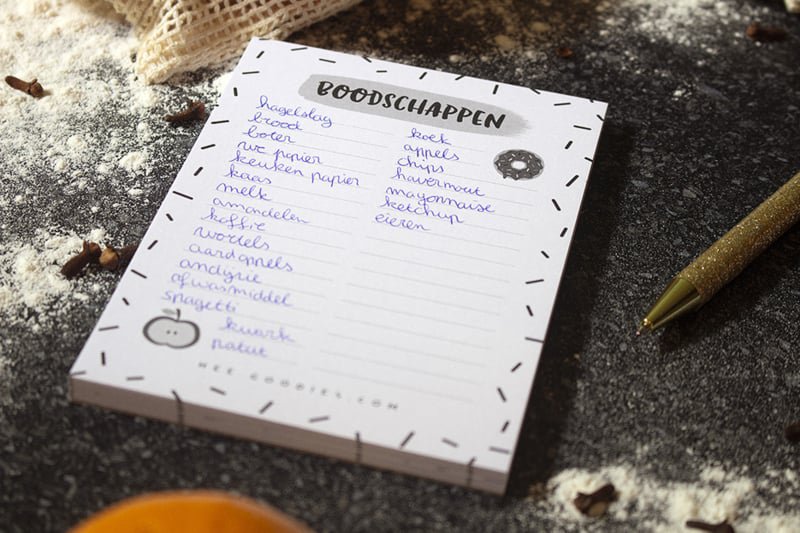 BOODSCHAPPEN
hagelslag
brood
boter
wc papier
keuken papier
kaas
melk
amandelen
koffie
wortels
aardappels
andijvie
afwasmiddel
spagetti
kwark
koek
appels
chips
havermout
mayonnaise
ketchup
eieren